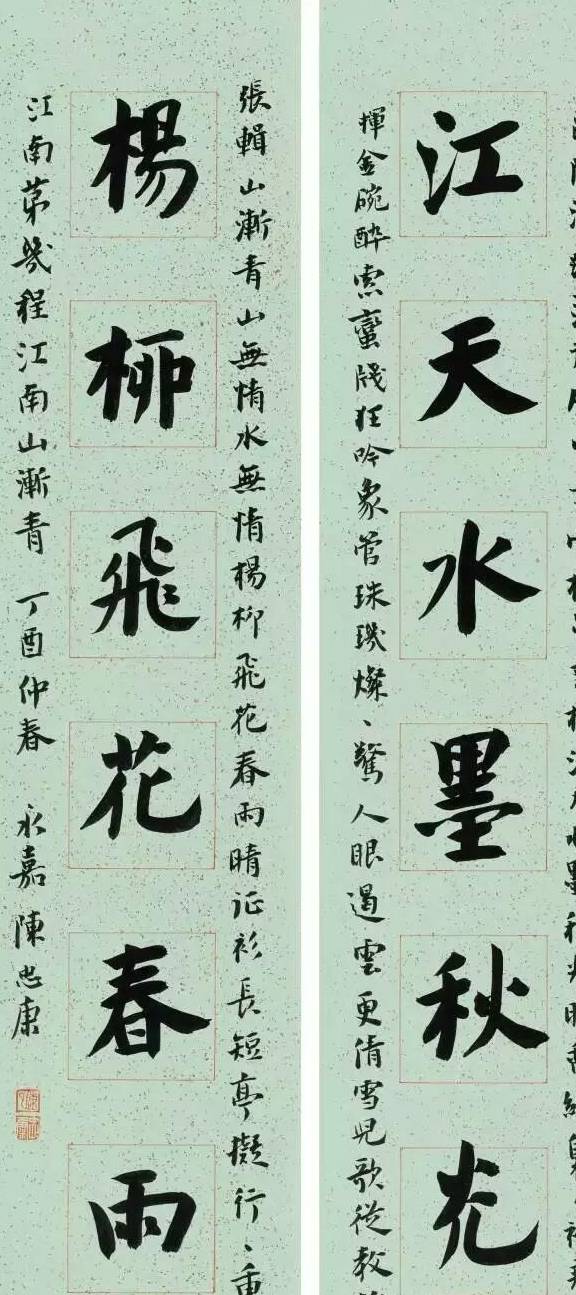 江天水墨秋光
揮金碗醉索蠻牋狂吟象管珠璣燦、驚人眼遏雲更倩雪兒歌從教
張輯山漸青山無情水無情楊柳飛花春雨晴征衫長短亭擬行、重
楊柳飛花春雨
江南第幾程江南山漸青 丁酉仲春 永嘉陳忠康